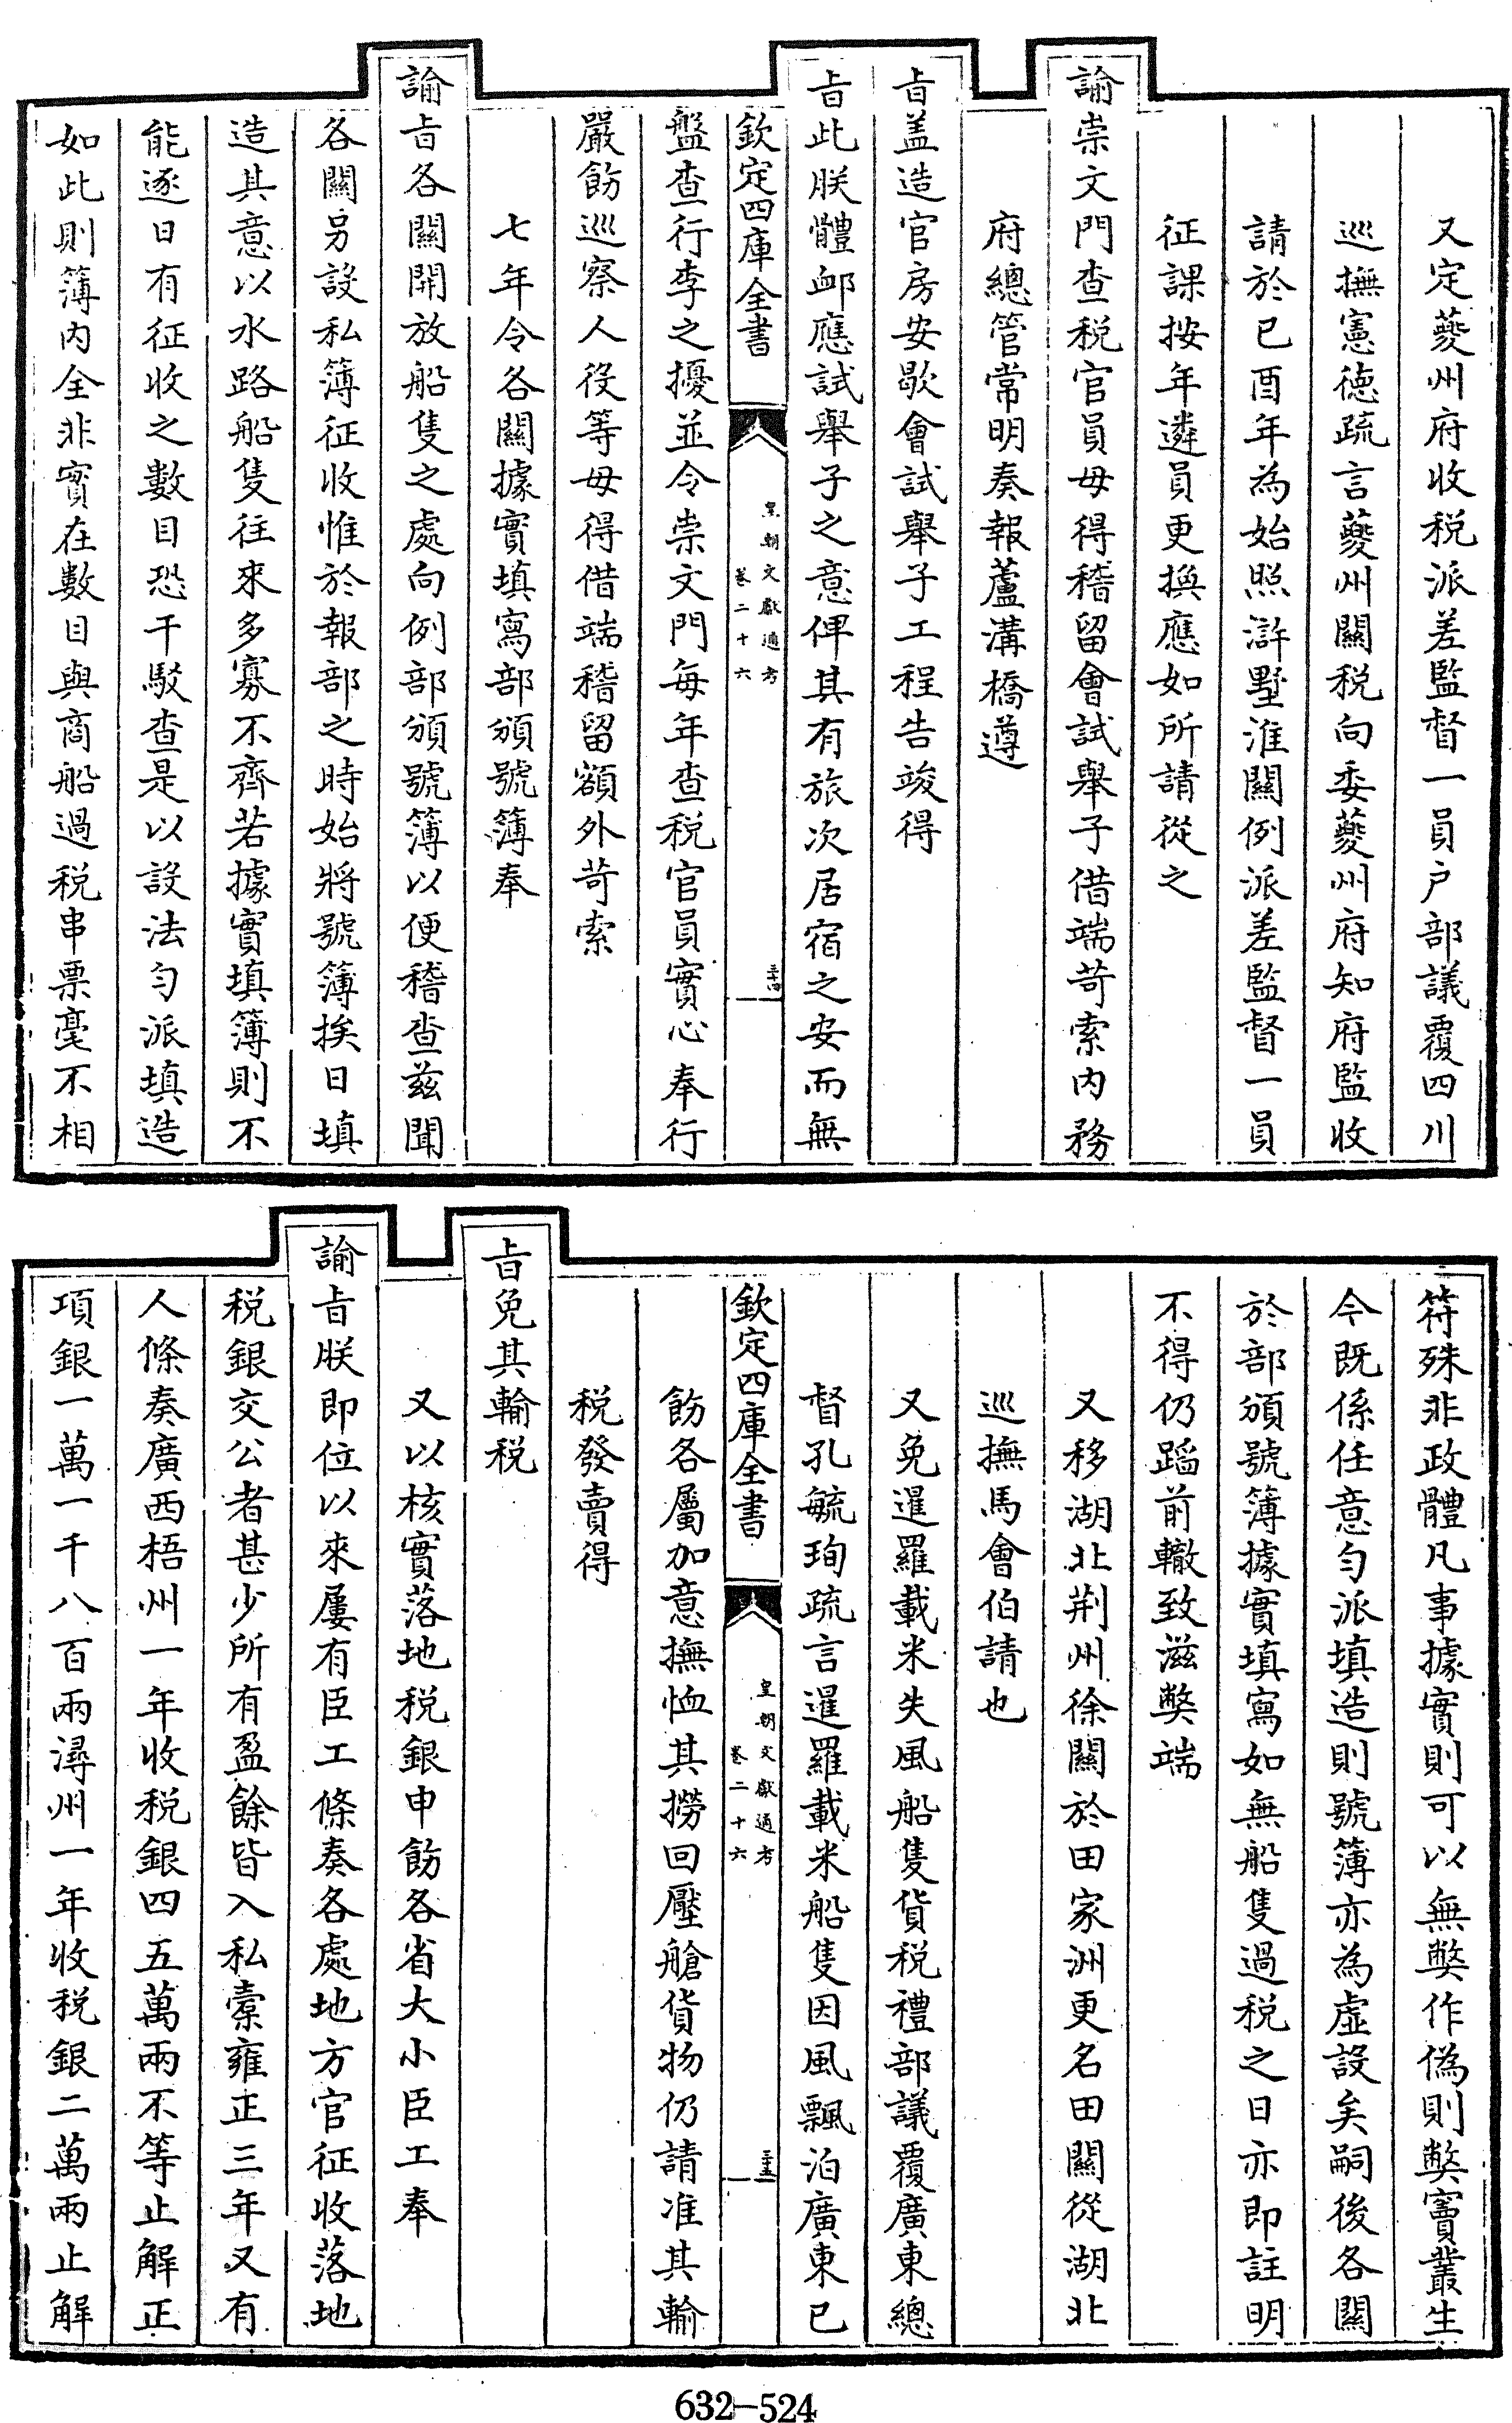 又定䕫州府收税派差監督一員户部議覆四川
巡撫憲德疏言䕫州關税向委䕫州府知府監收
請於已酉年為始照滸墅淮關例派差監督一員
征課按年遴員更換應如所請從之
諭崇文門查税官員毋得稽留會試舉子借端苛索内務
府總管常明奏報蘆溝橋遵
㫖盖造官房安歇會試舉子工程告竣得
㫖此朕體䘏應試舉子之意俾其有旅次居宿之安而無
欽定四庫全書
皇朝文獻通考
卷二十六
二十四
盤查行李之擾並令崇文門每年查税官員實心奉行
嚴飭巡察人役等毋得借端稽留額外苛索
七年令各關據實填寫部頒號簿奉
諭㫖各關開放船隻之處向例部頒號簿以便稽查兹聞
各關另設私簿征收惟於報部之時始將號簿挨日填
造其意以水路船隻往來多寡不齊若據實填簿則不
能逐日有征收之數目恐干駁查是以設法匀派填造
如此則簿内全非實在數目與商船過税串票毫不相
符殊非政體凡事據實則可以無弊作偽則弊竇叢生
今既係任意匀派填造則號簿亦為虚設矣嗣後各關
於部頒號簿據實填寫如無船隻過税之日亦即註明
不得仍蹈前轍致滋弊端
又移湖北荆州徐關於田家洲更名田關從湖北
巡撫馬會伯請也
又免暹羅載米失風船隻貨税禮部議覆廣東總
督孔毓珣疏言暹羅載米船隻因風飄泊廣東已
欽定四庫全書
皇朝文獻通考
卷二十六
二十五
飭各屬加意撫恤其撈回壓艙貨物仍請准其輸
税發賣得
㫖免其輸税
又以核實落地税銀申飭各省大小臣工奉
諭㫖朕即位以來屢有臣工條奏各處地方官征收落地
税銀交公者甚少所有盈餘皆入私槖雍正三年又有
人條奏廣西梧州一年收税銀四五萬兩不等止解正
項銀一萬一千八百兩潯州一年收税銀二萬兩止解
632-524